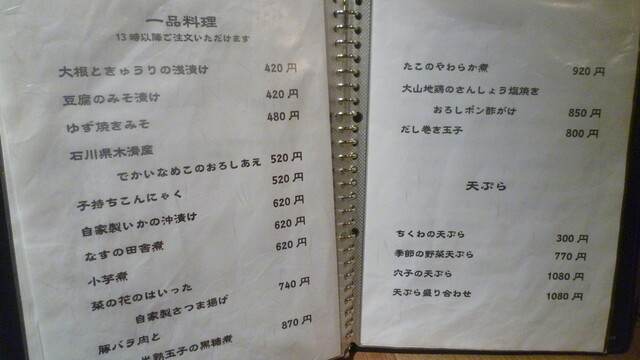 一品料理
13時以降ご注文いただけます
大根ときゅうりの浅漬け 420円
豆腐のみそ漬け 420円
ゆず焼きみそ 480円
石川県木滑産
でかいなめこのおろしあえ 520円
子持ちこんにゃく 520円
自家製いかの沖漬け 620円
なすの田舎煮 620円
小芋煮 620円
菜の花のはいった
自家製さつま揚げ 740円
豚バラ肉と
半熟玉子の黒糖煮 870円
たこのやわらか煮 920円
大山地鶏のさんしょう塩焼き
おろしポン酢がけ 850円
だし巻き玉子 800円
天ぷら
ちくわの天ぷら 300円
季節の野菜天ぷら 770円
穴子の天ぷら 1080円
天ぷら盛り合わせ 1080円